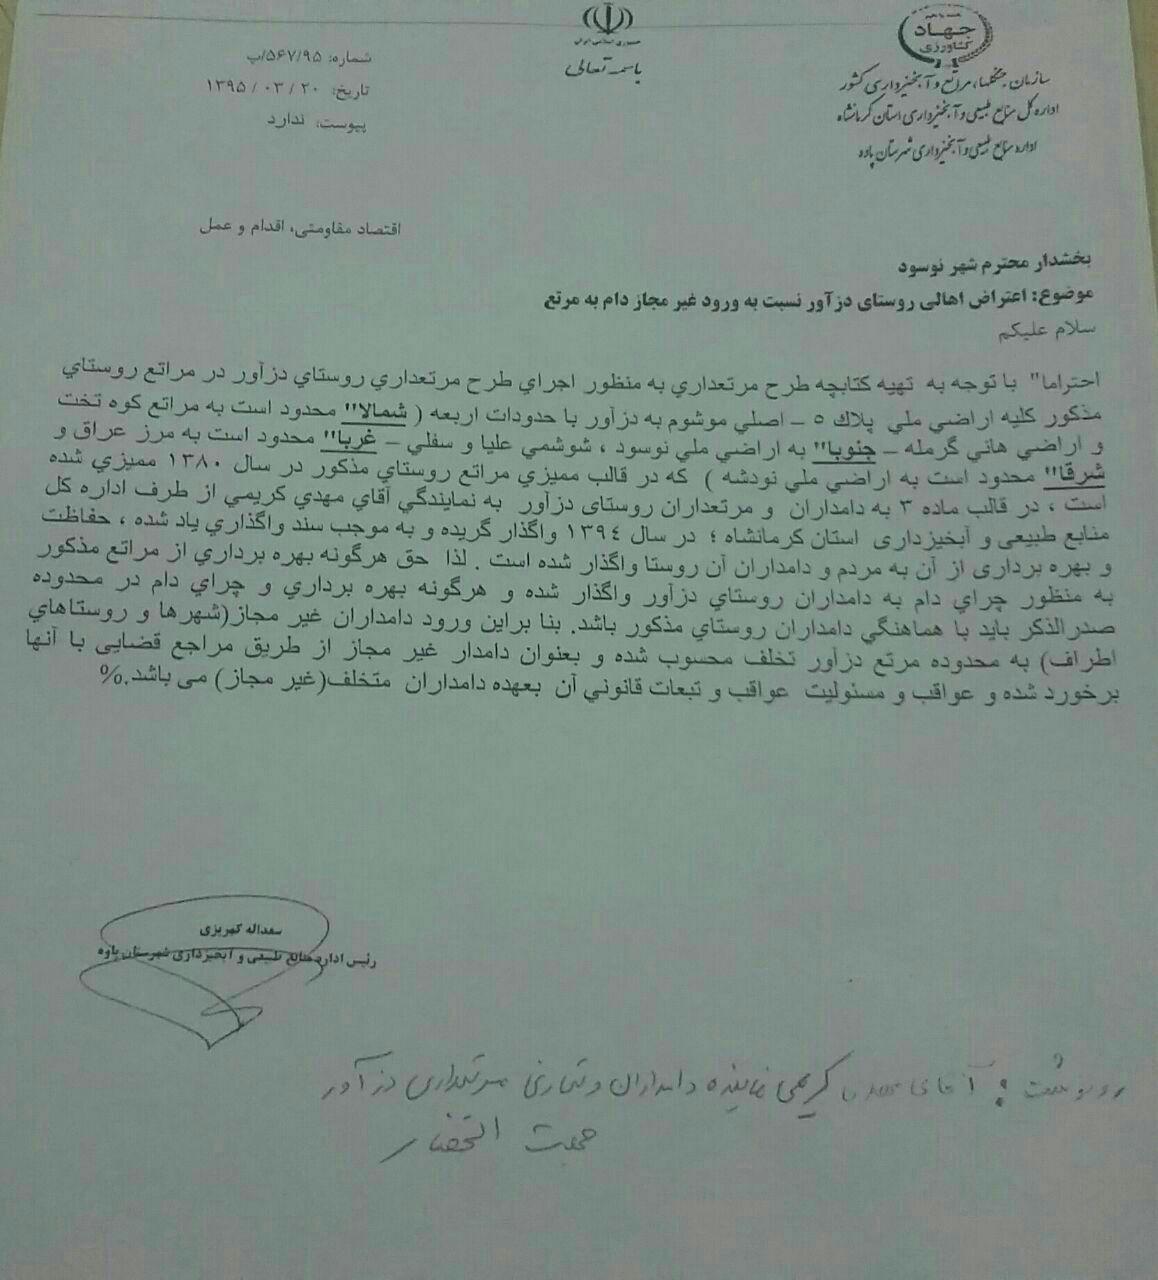 جهاد
کشاورزی
سازمان جنگلها، مراتع و آبخیزداری کشور
اداره کل منابع طبیعی و آبخیزداری استان کرمانشاه
اداره منابع طبیعی و آبخیزداری شهرستان پاوه
جمهوری اسلامی ایران
باسمه تعالی
شماره: ۵۶۷/۹۵/پ
تاریخ: ۲۰ / ۰۳ / ۱۳۹۵
پیوست: ندارد
اقتصاد مقاومتی، اقدام و عمل
بخشدار محترم شهر نوسود
موضوع: اعتراض اهالی روستای دزآور نسبت به ورود غیر مجاز دام به مرتع
سلام علیکم
احتراما" با توجه به تهیه کتابچه طرح مرتعداري به منظور اجراي طرح مرتعداري روستاي دزآور در مراتع روستاي
مذکور کلیه اراضي ملي پلاك ٥ – اصلي موشوم به دزآور با حدودات اربعه ( شمالا" محدود است به مراتع کوه تخت
و اراضي هاني گرمله – جنوبا" به اراضي ملي نوسود ، شوشمي علیا و سفلي – غربا" محدود است به مرز عراق و
شرقا" محدود است به اراضي ملي نودشه ) که در قالب ممیزي مراتع روستاي مذکور در سال ١٣٨٠ ممیزي شده
است ، در قالب ماده ٣ به دامداران و مرتعداران روستای دزآور به نمایندگي آقاي مهدي کریمي از طرف اداره کل
منابع طبیعی و آبخیزداری استان کرمانشاه ؛ در سال ١٣٩٤ واگذار گریده و به موجب سند واگذاري یاد شده ، حفاظت
و بهره برداری از آن به مردم و دامداران آن روستا واگذار شده است . لذا حق هرگونه بهره برداري از مراتع مذکور
به منظور چراي دام به دامداران روستاي دزآور واگذار شده و هرگونه بهره برداري و چراي دام در محدوده
صدرالذکر باید با هماهنگي دامداران روستاي مذکور باشد. بنا براین ورود دامداران غیر مجاز(شهرها و روستاهاي
اطراف) به محدوده مرتع دزآور تخلف محسوب شده و بعنوان دامدار غیر مجاز از طریق مراجع قضایی با آنها
برخورد شده و عواقب و مسئولیت عواقب و تبعات قانوني آن بعهده دامداران متخلف(غیر مجاز) می باشد.%
سعداله کهریزی
رئیس اداره منابع طبیعی و آبخیزداری شهرستان پاوه
رونوشت : آقای کریمی نماینده دامداران و مرتعداری دزآور
جهت استحضار